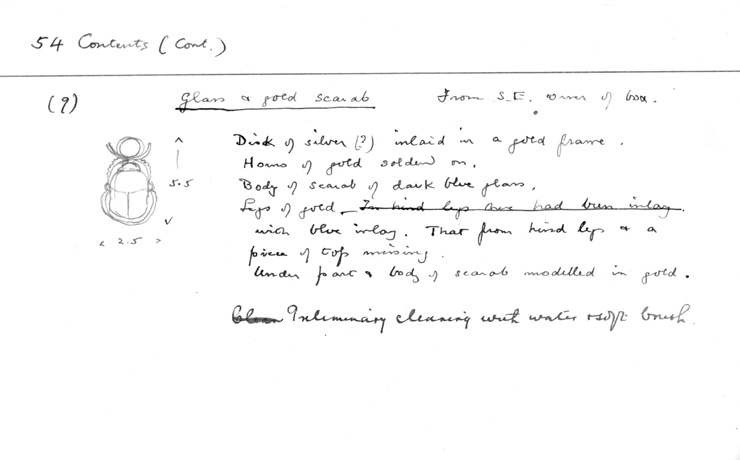 54 Contents (Cont.)
(9) Glass & gold scarab From S.E. corner of box.
Disk of silver (?) inlaid in a gold frame.
Horns of gold soldered on.
5.5 Body of scarab of dark blue glass.
Legs of gold In hind legs there had been inlay.
< 2.5 > with blue inlay. That from hind legs & a
piece of top missing.
Under part & body of scarab modelled in gold.
Clean Preliminary cleaning with water & soft brush.